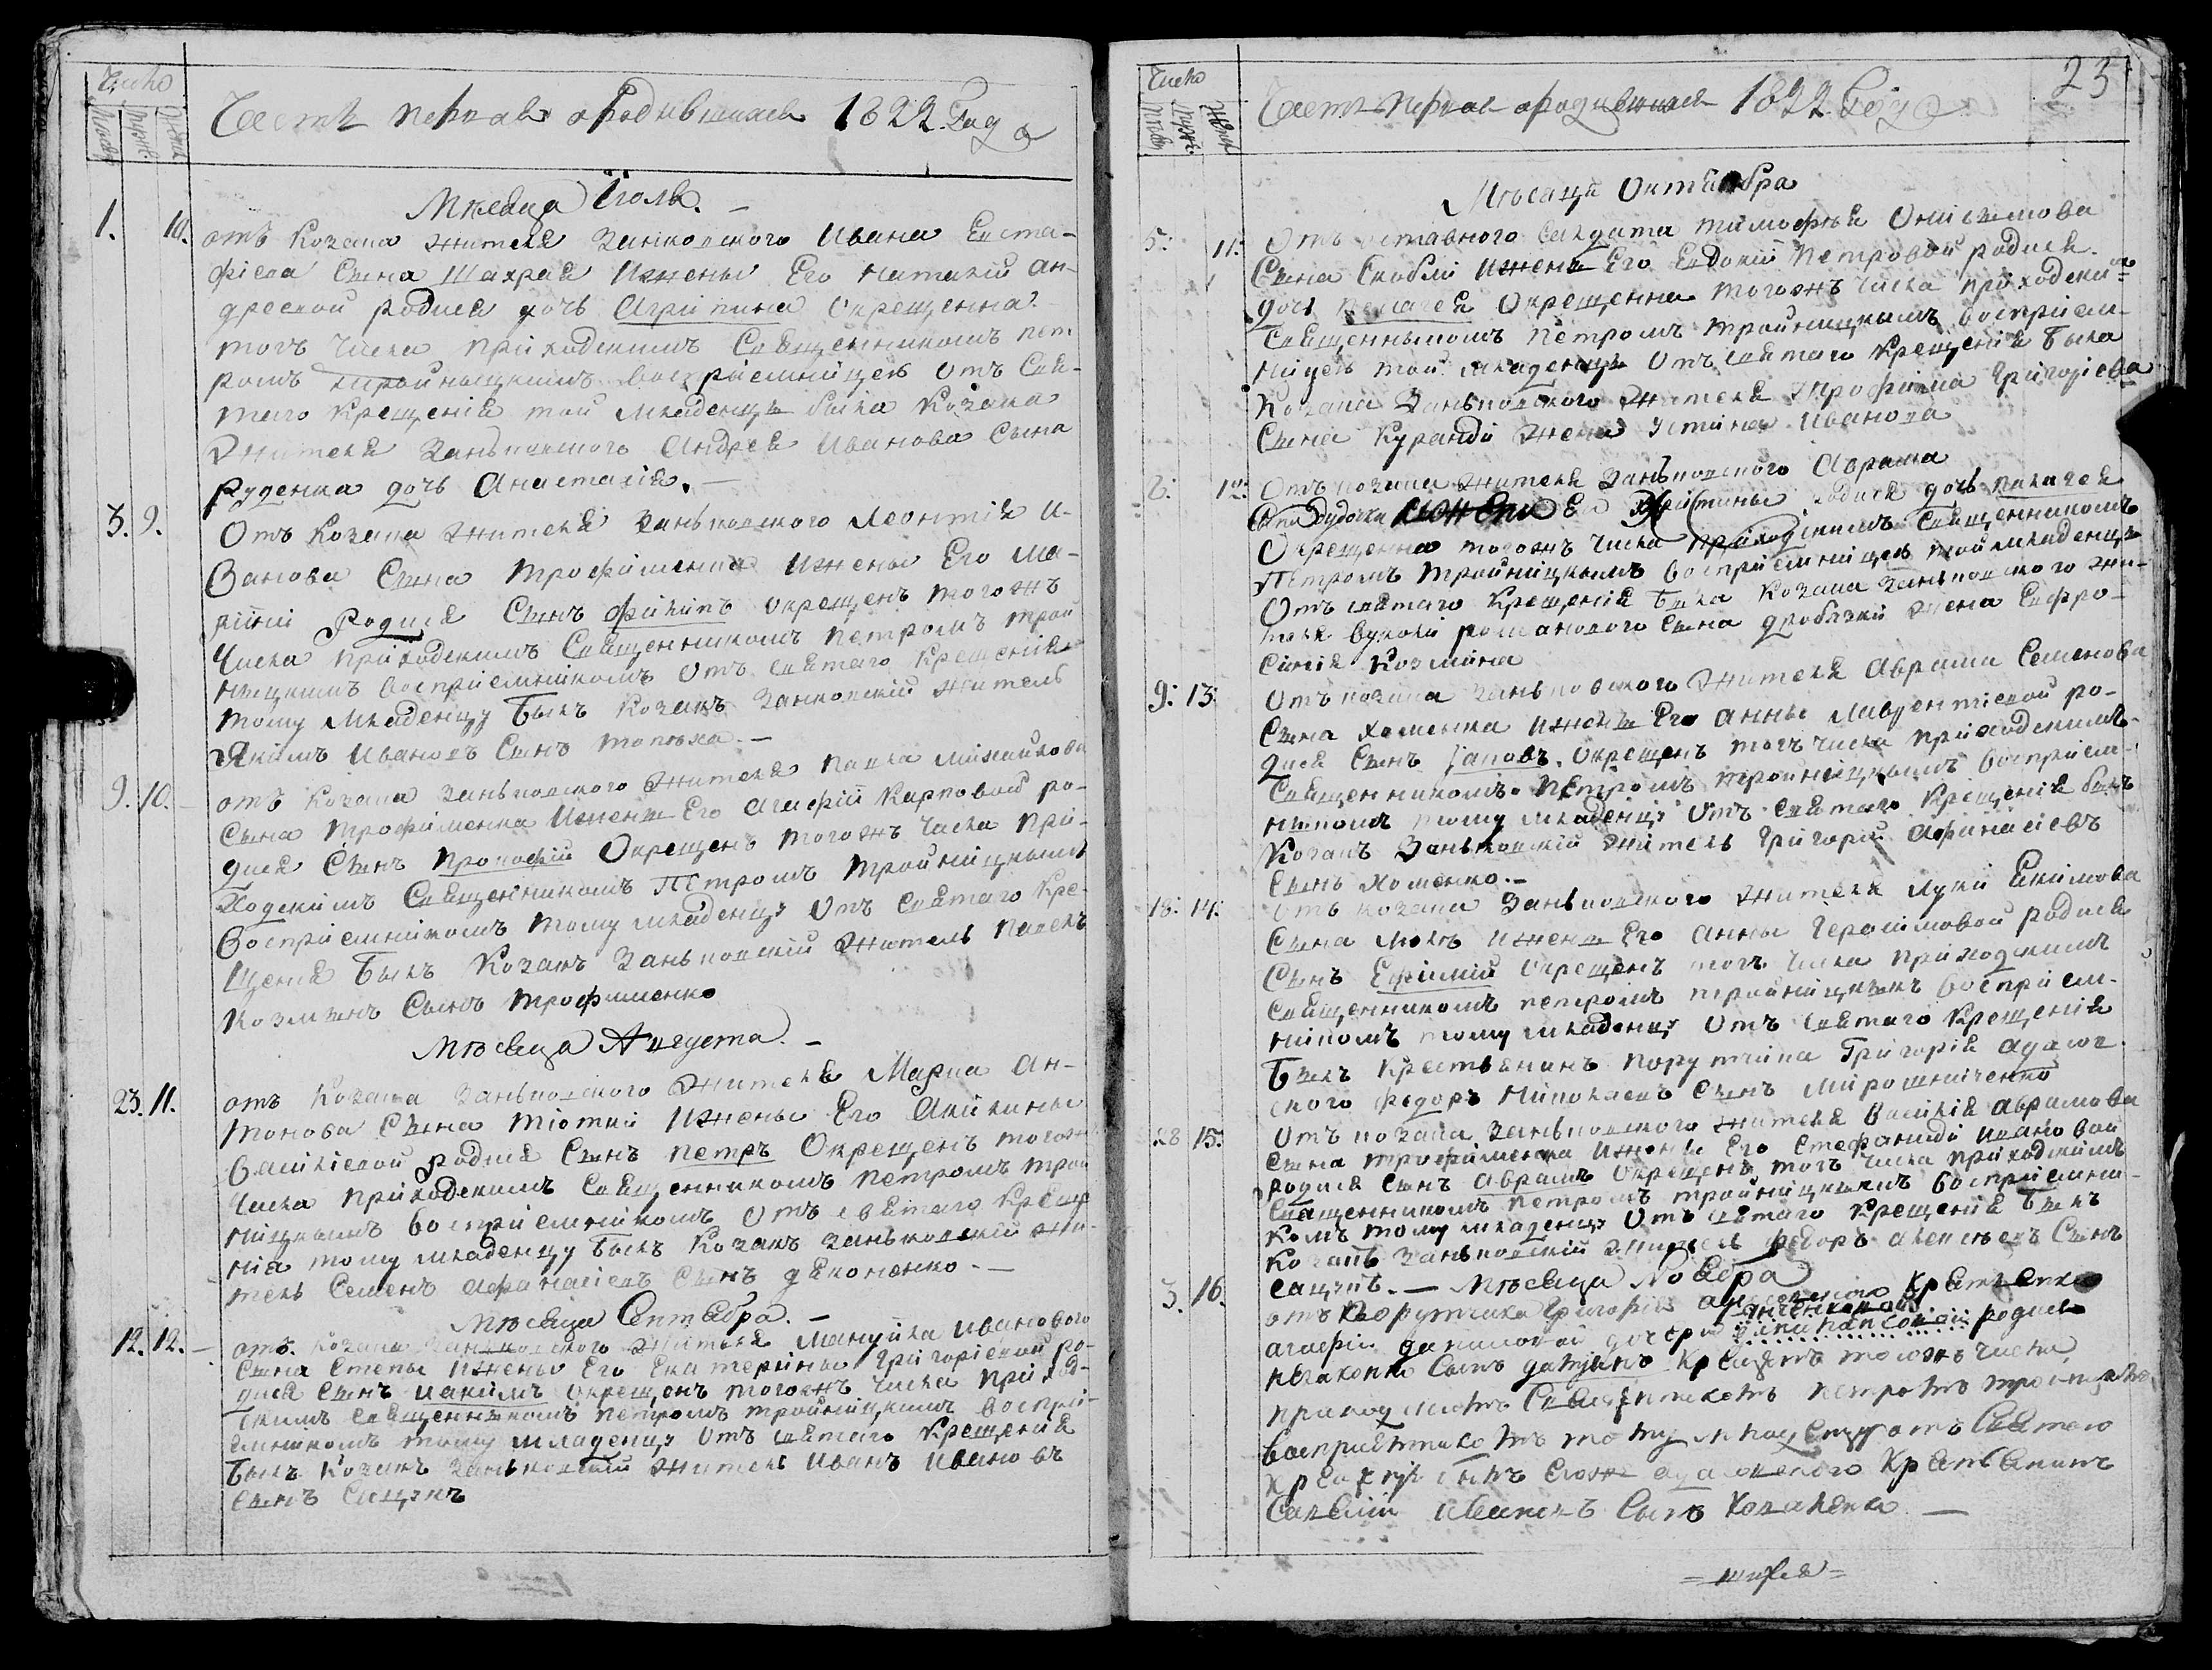 Число
Часть первая о родившихся 1822 Года
Мѣсяца Іюля. —
1. 10. отъ козака жителя Занковского Ивана Евста-
фіева Сына Шахрая Ижены Его Наталіи Ан-
дреевой родися дочь Агрипина окрещенна
тогъ числа приходскимъ Священникомъ Пет-
ромъ Тройницкимъ восприемницею отъ Свя-
таго крещенія той младенцѣ была козака
Жителя Заньковского Андрея Иванова сына
Руденка дочь Анастасія. —
3. 9. Отъ козака жителя Заньковского Леонтія И-
ванова Сына Трофименка Ижены Его Ма-
ріи Родися Сынъ Филипъ окрещенъ тогожъ
Числа приходскимъ Священникомъ Петромъ Трой
ницкимъ восприемникомъ отъ святаго крещенія
тому младенцу былъ козакъ Занковскій житель
Якимъ Ивановъ Сынъ
9. 10. отъ козака Заньковского Жителя Павла Михайлова
Сына Трофименка Ижены Его Агафіи Карповой ро-
дися Сынъ Прокофій Окрещенъ тогожъ числа при-
ходскимъ Священникомъ Петромъ Тройницкимъ
Восприемникомъ тому младенцу отъ Святаго кре-
щенія былъ козакъ Заньковскій Житель Павелъ
Козминъ Сынъ Трофименко
Мѣсяца Августа. —
23. 11. отъ козака Заньковского Жителя Марка Ан-
тонова Сына Тютки Ижены Его Акилины
Василіевой родися Сынъ Петръ Окрещенъ тогожъ
числа приходскимъ Священникомъ Петромъ Трой
ницкимъ восприемникомъ отъ святаго креще
нія тому младенцу былъ козакъ Заньковскій жи-
тель Семенъ Афанасіевъ Сынъ Дяконенко. —
Мѣсяца Септября. —
12. 12. — отъ козака Заньковского Жителя Мануйла Иванового
Сына Степы Ижены Его Екатерины Григоріевой ро-
дися Сынъ Иакимъ окрещенъ тогожъ числа приход-
скимъ священникомъ Петромъ Тройницкимъ воспри-
емникомъ тому младенцу отъ святаго крещенія
былъ козакъ Заньковскій житель Иванъ Ивановъ
Сынъ
Число
Часть первая о родившихся 1822 Года
23
Мѣсяца Октября
5: 11: Отъ отставного салдата Тимофѣя Онисимова
Сына Скобли Иженѣ Его Евдокіи Петровой родися
дочь Пелагея Окрещенна тогожъ числа приходским
Священникомъ Петромъ Тройницкимъ восприем-
ницею той младенцѣ отъ святаго крещенія была
Козака Заньковского Жителя Трофима Григоріева
Сына Куранди Жена Устина Иванова
12: Отъ козака жителя Заньковского Аврама
Дудочки Ижены Его Христины родися дочь Палагея
Окрещенна тогожъ числа приходскимъ Священникомъ
Петромъ Тройницкимъ восприемницею той младенцѣ
Отъ святаго крещенія была козака Заньковского жи-
теля Вуколи Романового сына Дробязки жена Евфро-
синія Козмина
9: 13: Отъ козака Заньковского Жителя Аврама Семенова
Сына Хоменка Иженѣ Его Анны Лаврентіевой ро-
дися Сынъ Іаковъ. окрещенъ тогъ числа приходскимъ
Священникомъ Петромъ Тройницкимъ восприем-
никомъ тому младенцу отъ святаго крещенія былъ
Козакъ Заньковскій житель Григорій Афанасіевъ
Сынъ Хоменко. —
18: 14: отъ козака Заньковского жителя Луки Екимова
Сына Ижены Его Анны Герасимовой родися
Сынъ Ефимій окрещенъ тогъ числа приходскимъ
священникомъ Петромъ Тройницкимъ восприем-
никомъ тому младенцу отъ святаго крещенія
былъ крестьянинъ порутчика Григорія Адамов-
ского Федоръ Николаевъ Сынъ Мирошниченко
28 15: Отъ козака Заньковского жителя Василія Аврамова
Сына Трофименка Ижены Его Стефаниди Ивановой
родися Сынъ Аврамъ окрещенъ тогъ числа приходскимъ
священникомъ Петромъ Тройницкимъ восприемни-
комъ тому младенцу отъ святаго крещенія былъ
козакъ Заньковскій житель Федоръ Алексѣевъ Сынъ
— Мѣсяца Ноября
3. 16. отъ порутчика Григорія
Агафіи Даниловой дочери родися
Сынъ Дамянъ крещенъ тогожъ числа
приходскимъ Священикомъ Петромъ Тройницкимъ
восприемникомъ тому младенцу отъ Святого
былъ Егожъ Адамовского крестьянинъ
Савелій Ивановъ Сынъ